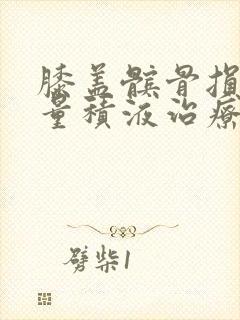 膝盖髌骨损
量积液治疗
劈柴1